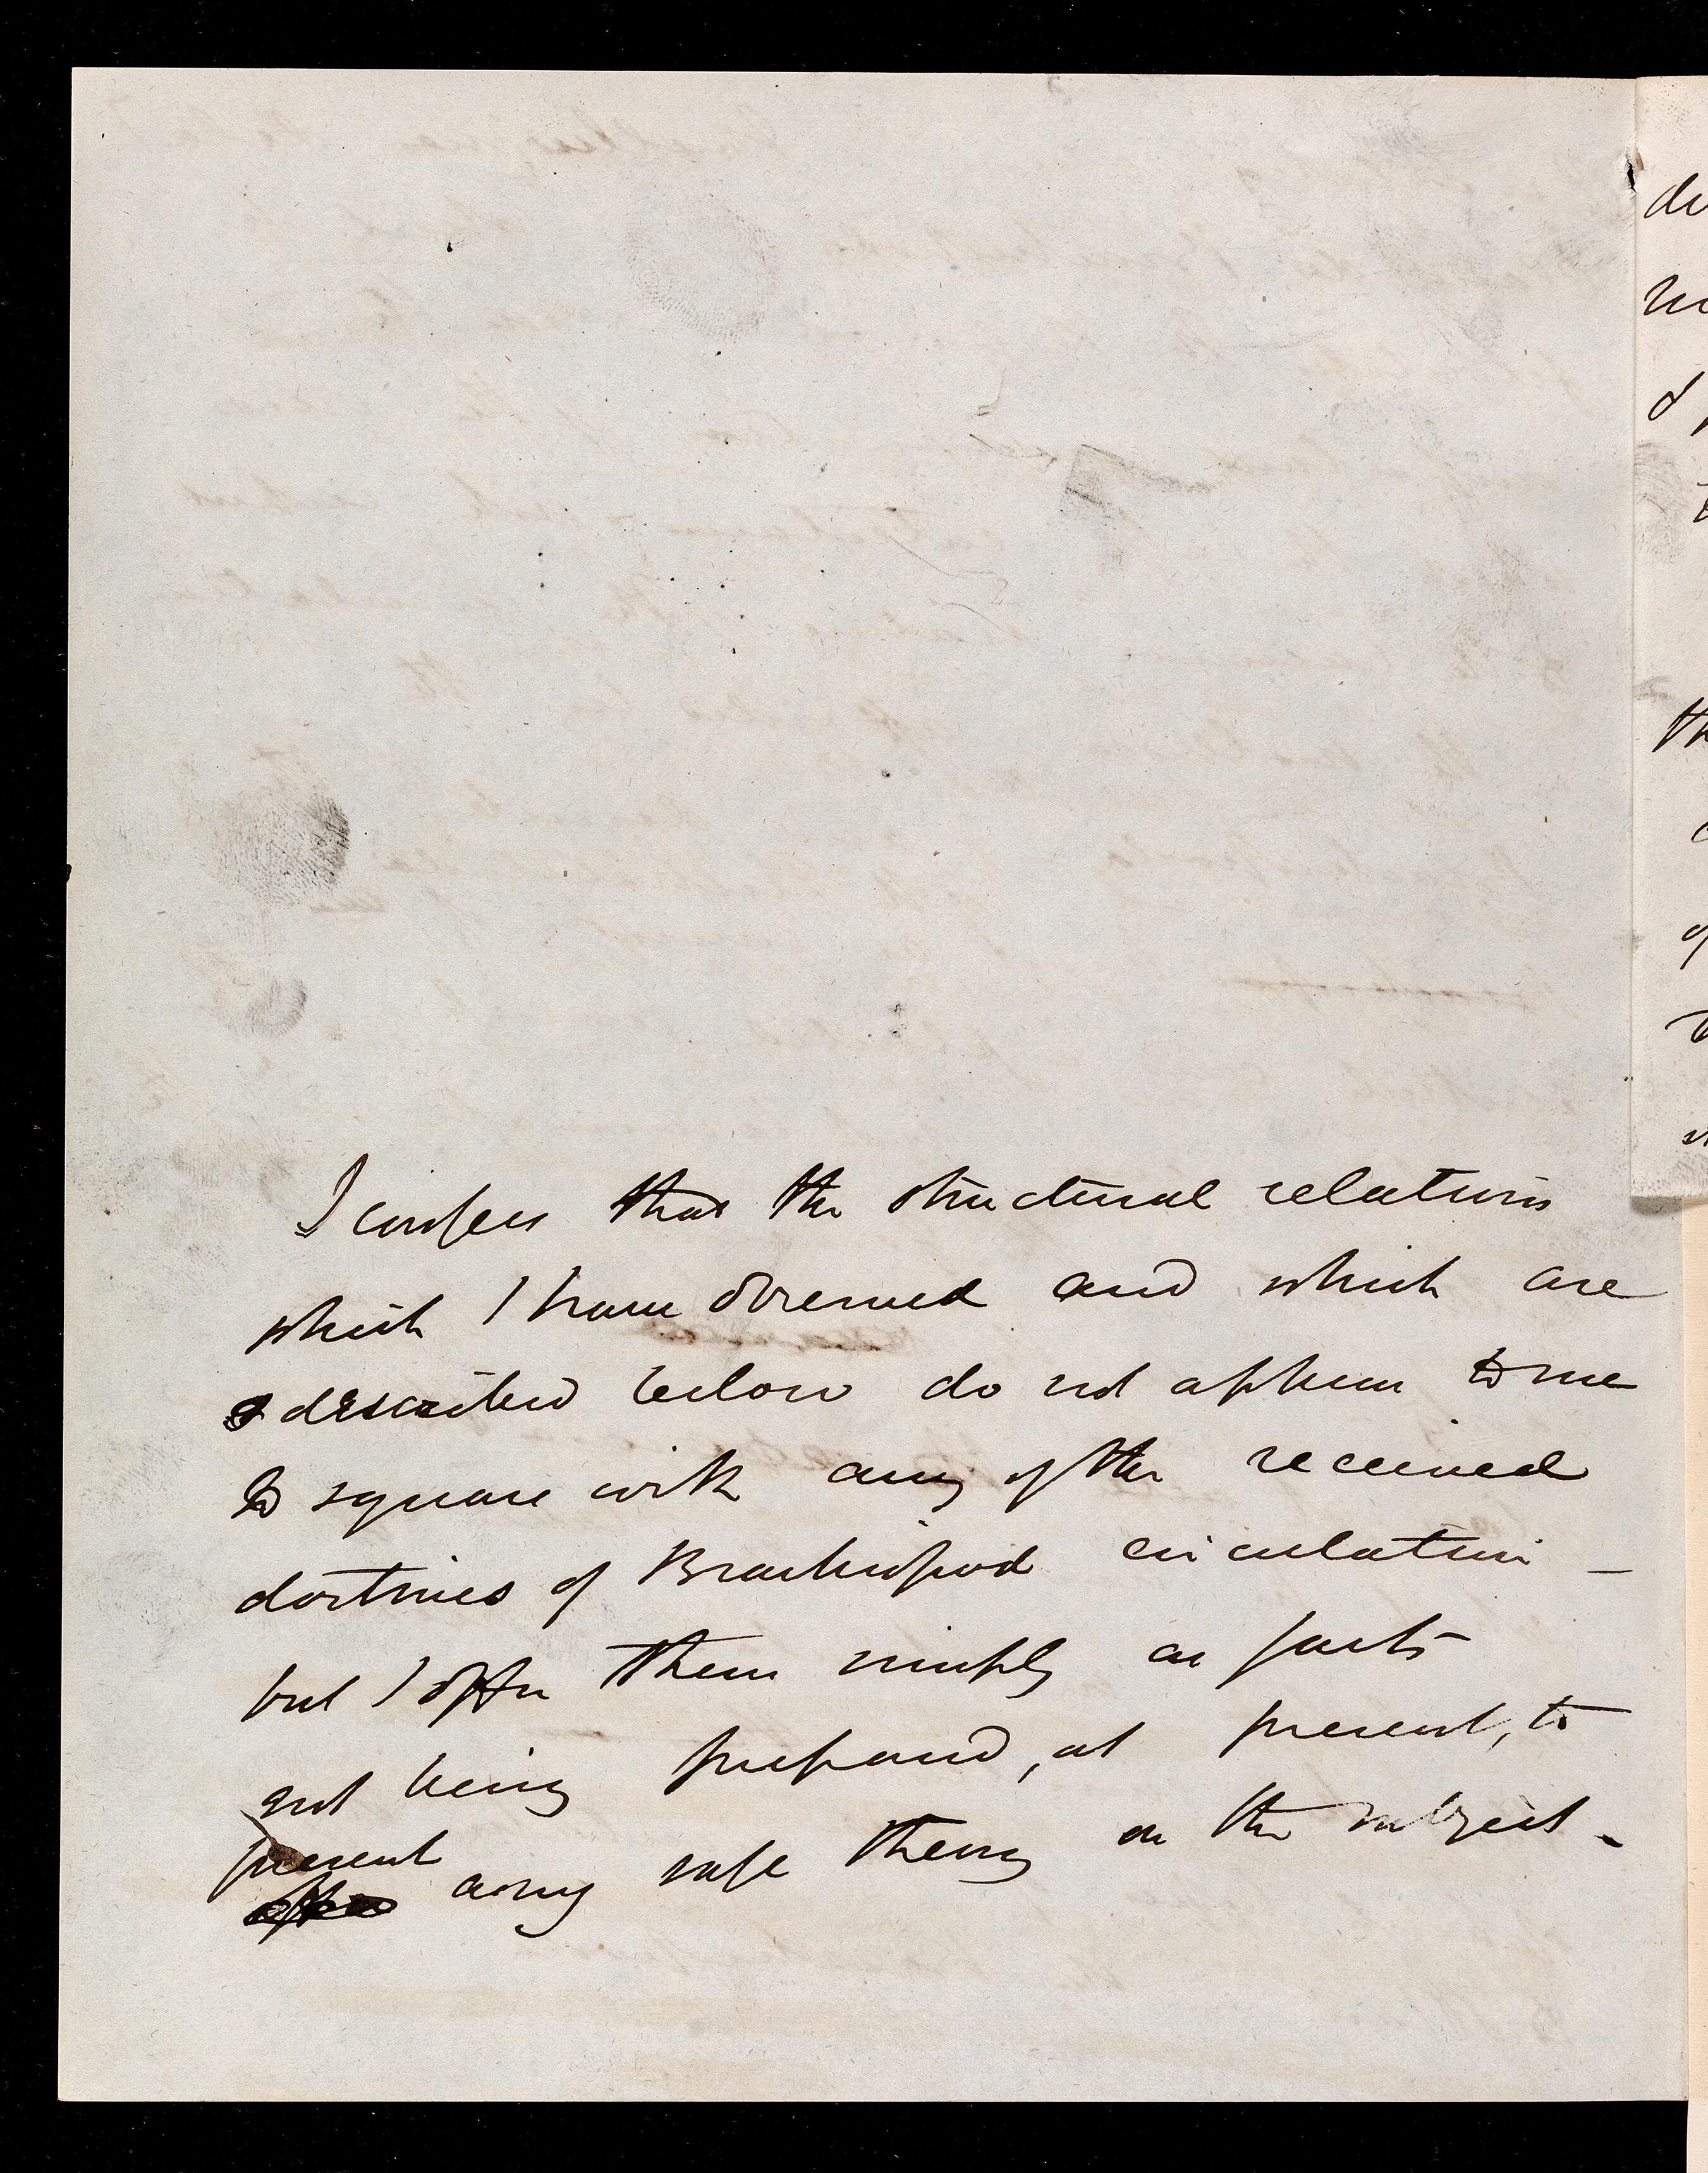 I confess that the structural relations
which I have observed and which are
described below do not appear to me
to square with any of the received
doctrines of Brachiopod circulation –
but I offer them simply as facts
not being prepared, at present, to
present
any safe theory on the subject.